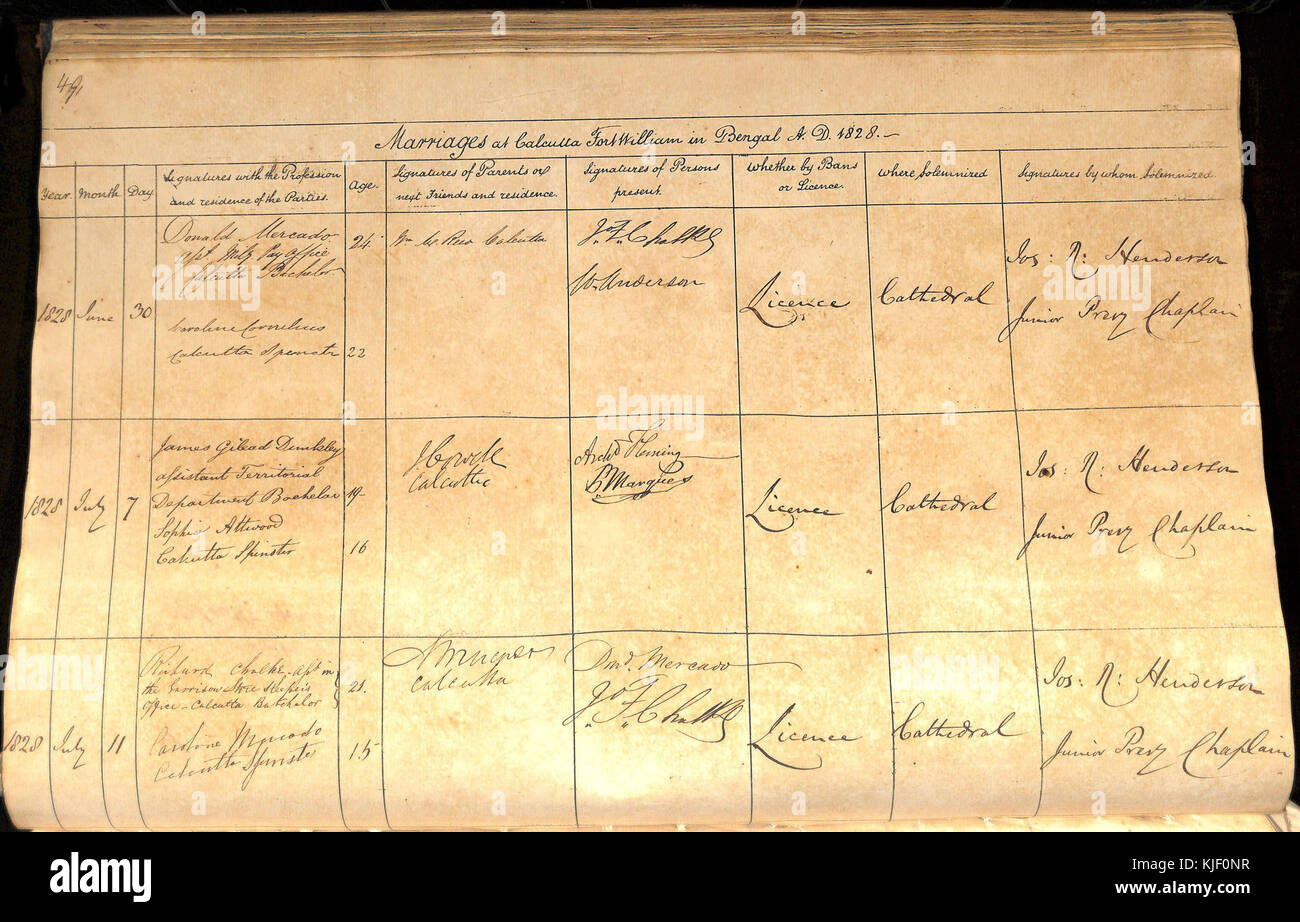 49,
Marriages at Calcutta Fort William in Bengal A. D. 1828.—
Year. Month Day. Signatures with the Profession and residence of the Parties. Age. Signatures of Parents or next Friends and residence. Signatures of Persons present. Whether by Bans or Licence. Where Solemnized Signatures by whom Solemnized
1828 June 30
Donald Mercado
Pay Office
Bachelor
24
Calcutta
J. F. Chalke
W. Anderson
Licence
Cathedral
Jos: R: Henderson
Junior Presy Chaplain
Caroline Cornelius
Calcutta Spinster 22
1828 July 7
James Gilead
assistant Territorial
Department Bachelor 19
Sophia Attwood
Calcutta Spinster 16
Calcutta
Archd Fleming
Licence
Cathedral
Jos: R: Henderson
Junior Presy Chaplain
1828 July 11
Richard Chalke. apt in
the Garrison Store
Office - Calcutta Batchelor
21.
Caroline Mercado
Calcutta Spinster
15
Calcutta
Dnd. Mercado
J. F. Chalke
Licence
Cathedral
Jos: R: Henderson
Junior Presy Chaplain
alamy
alamy
Image ID: WJF0NR
www.alamy.com